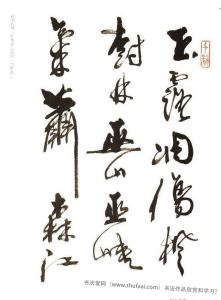 玉露凋傷楓
樹林巫山巫峽
氣蕭森江
书法爱网（www.shufaai.com）书法作品欣赏和学习